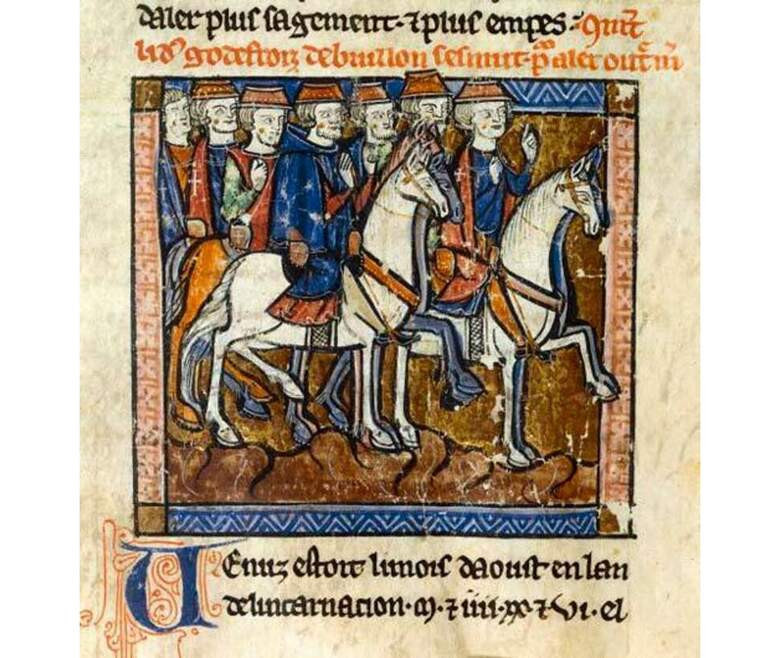 daler plus sagement. ⁊ plus empes. Qnt
li dˢ godefroiz de buillon sesmut. pᵃ aler
Venuz estoit li mois daoust en lan
de lincarnacion. m. ⁊ iiii. xx ⁊ vi. el